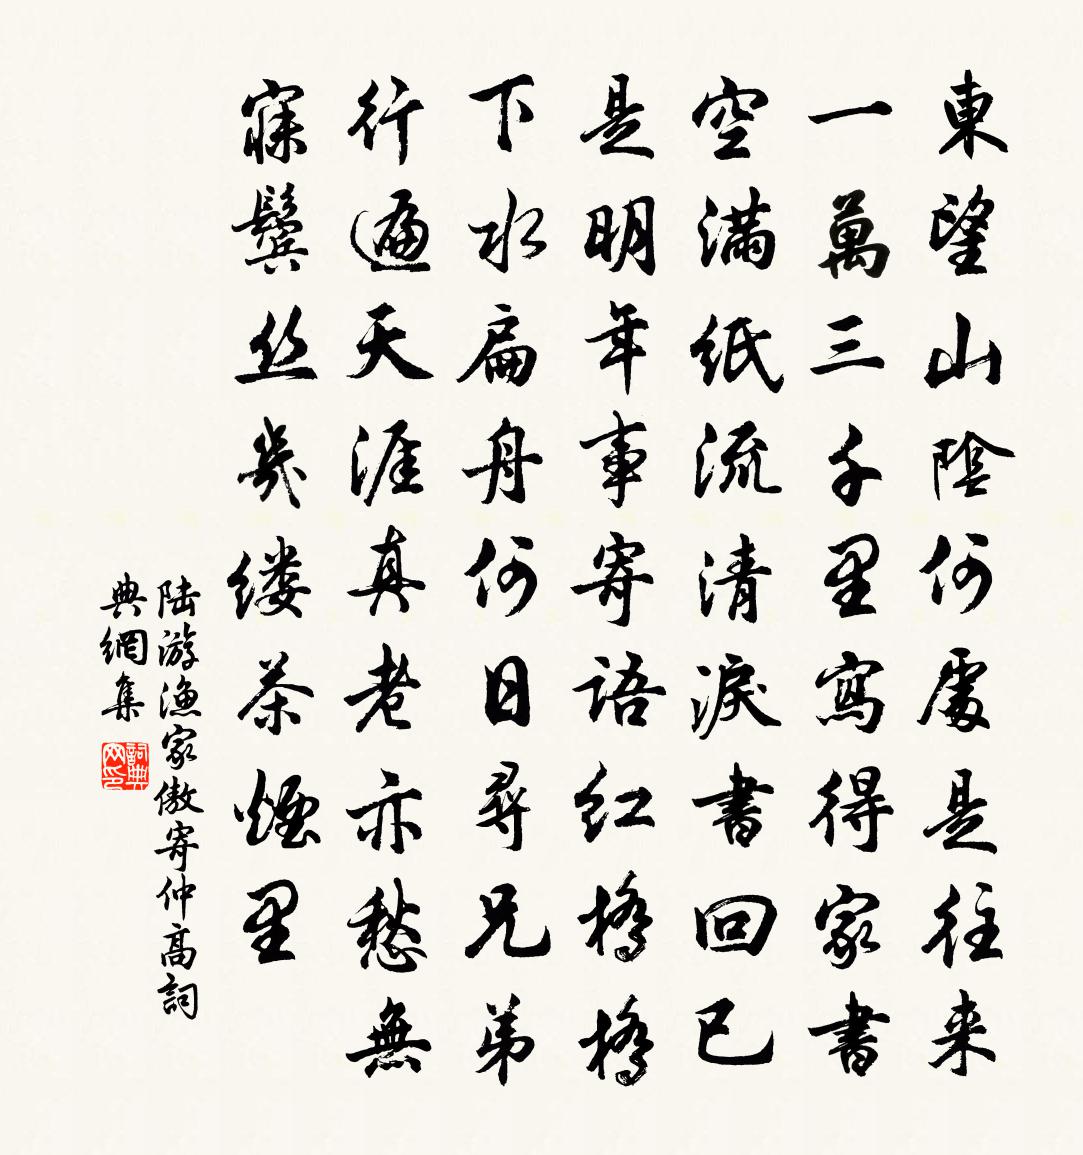 東望山陰何處是往来
一萬三千里寫得家書
空滿紙流清淚書回已
是明年事寄語红橋橋
下水扁舟何日尋兄弟
行遍天涯真老亦愁無
寐鬢丝幾缕茶煙里
陆游漁家傲寄仲高詞
典網集
詞典网印